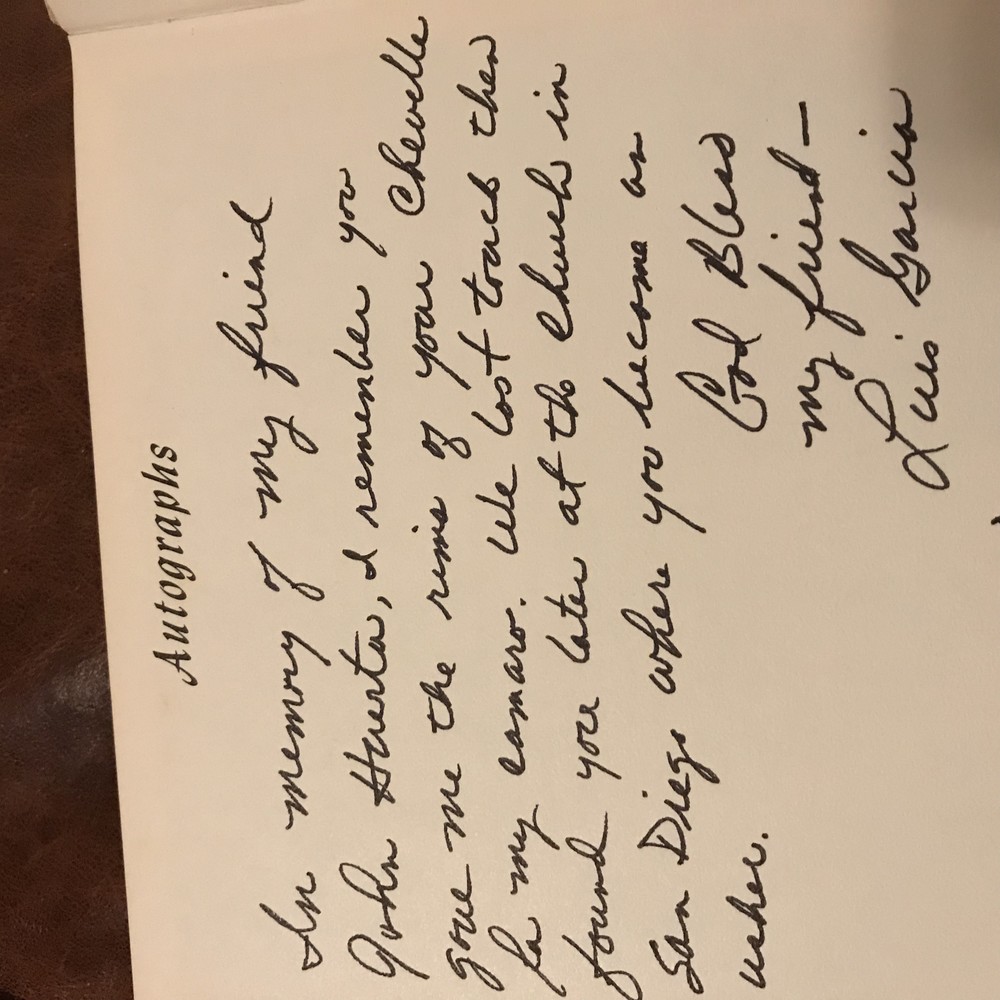 Autographs
In memory of my friend
John Huerta, I remember you
gave me the rims of your Chevelle
for my camaro. We lost touch then
found you later at the church in
San Diego where you become an
usher.
God Bless
my friend —
Luis Garcia